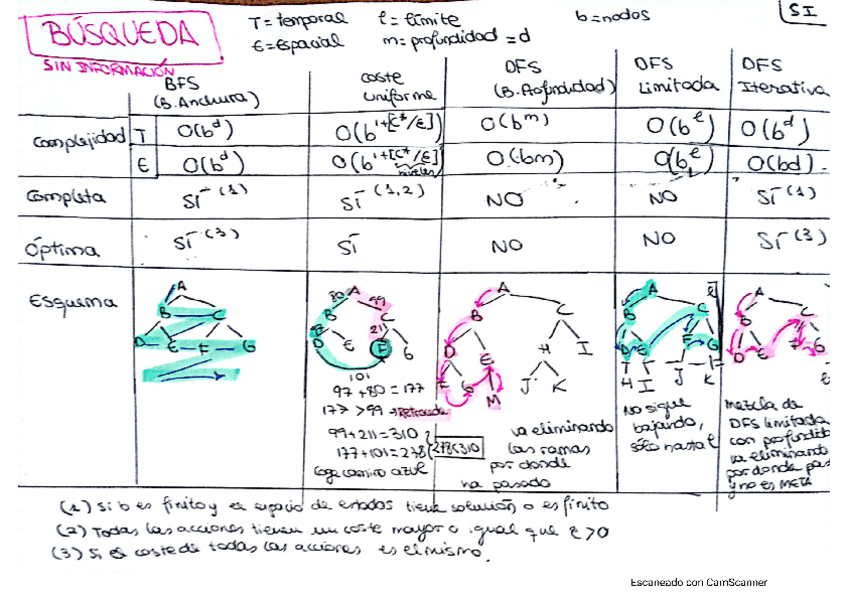 BÚSQUEDA
SIN INFORMACIÓN
T = temporal
E = Espacial
ℓ = límite
m = profundidad = d
b = nodos
SI
BFS
(B. Anchura)
coste
uniforme
DFS
(B. Profundidad)
DFS
Limitada
DFS
Iterativa
Complejidad
T
O(b^d)
O(b^1+[C*/ε])
O(b^m)
O(b^ℓ)
O(b^d)
E
O(b^d)
O(b^1+[C*/ε])
niveles
O(bm)
O(bℓ)
O(bd)
Completa
SÍ (1)
SÍ (1,2)
NO
NO
SÍ (1)
Óptima
SÍ (3)
SÍ
NO
NO
SÍ (3)
Esquema
A
B C
D E F G
80 A 99
B C
211
D E F G
101
97 + 80 = 177
177 > 99 → Retrocede
99 + 211 = 310
177 + 101 = 278
278 < 310
coge camino azul
A
B C
D E H I
F G M J K
va eliminando
las ramas
por donde
ha pasado
A
B C
D E F G
H I J K
ℓ
No sigue
bajando,
sólo hasta ℓ
A
B C
D E F G
Mezcla de
DFS limitada
con profundid
va eliminando
por donde pas
y no es META
(1) Si b es finito y el espacio de estados tiene solución o es finito
(2) Todas las acciones tienen un coste mayor o igual que ε > 0
(3) Si el coste de todas las acciones es el mismo.
Escaneado con CamScanner